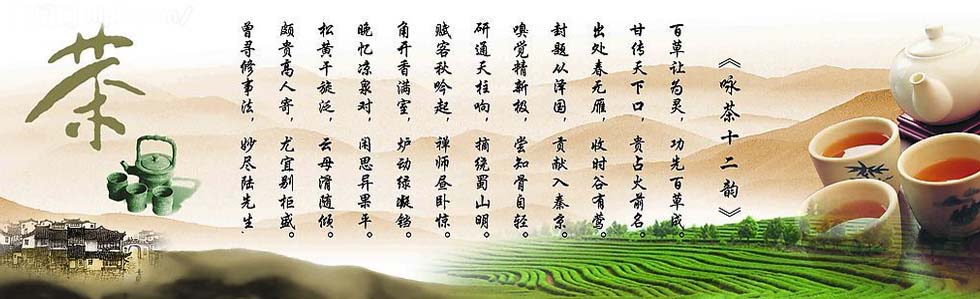 《咏茶十二韵》
百草让为灵，功先百草成。
甘传天下口，贵占火前名。
出处春无雁，收时谷有莺。
封题从泽国，贡献入秦京。
嗅觉精新极，尝知骨自轻。
研通天柱响，摘绕蜀山明。
赋客秋吟起，禅师昼卧惊。
角开香满室，炉动绿凝铛。
晚忆凉泉对，闲思异果平。
松黄干旋泛，云母滑随倾。
颇贵高人寄，尤宜别柜盛。
曾寻修事法，妙尽陆先生。
茶